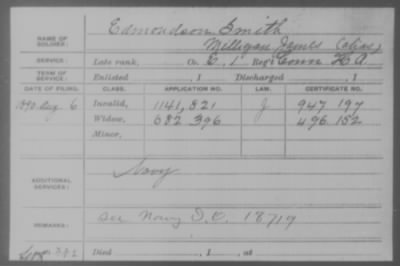 NAME OF SOLDIER: Edmondson Smith
Milligan James (alias)
SERVICE: Late rank, Co. C, 1 Reg't Conn H A.
TERM OF SERVICE: Enlisted , 1 Discharged , 1
DATE OF FILING. CLASS. APPLICATION NO. LAW. CERTIFICATE NO.
1890 Aug 6 Invalid, 1141,821 J 947 197
Widow, 682 396 496.152
Minor,
ADDITIONAL SERVICES: Navy
REMARKS: see Navy I.O. 18717
Died , 1 , at